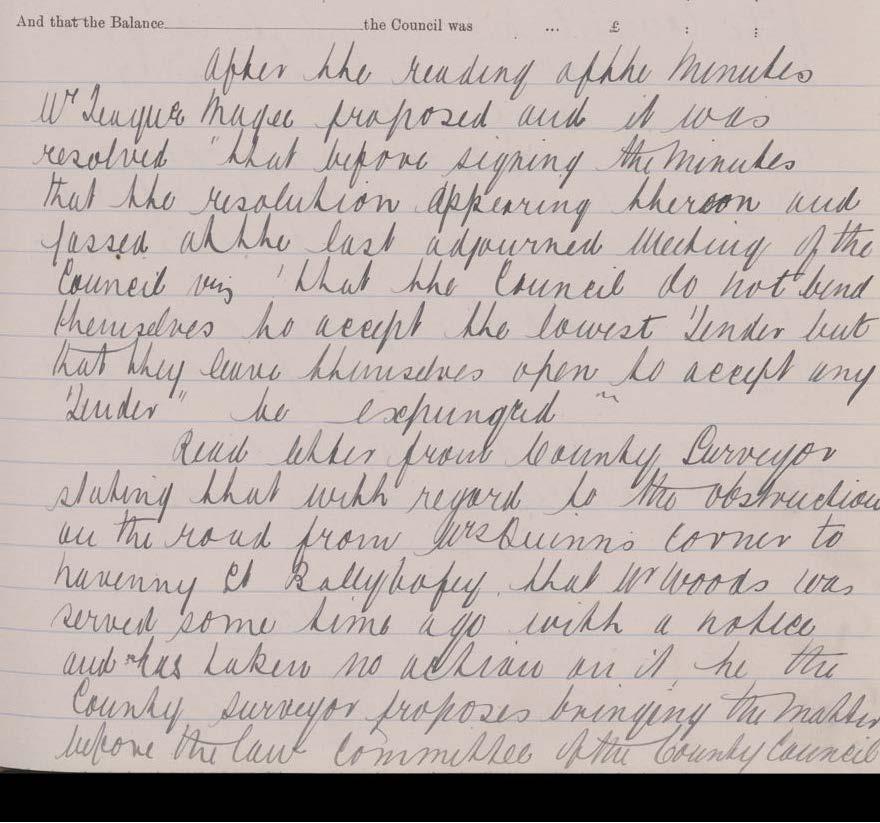 And that the Balance the Council was ... £ : :
After the reading of the Minutes
Mr Teague Magee proposed and it was
resolved "that before signing the Minutes
that the resolution appearing thereon and
passed at the last adjourned Meeting of the
Council viz 'that the Council do not bind
themselves to accept the lowest Tender but
that they leave themselves open to accept any
Tender" be expunged"
Read letter from County Surveyor
stating that with regard to the obstruction
on the road from Mrs Quinn's corner to
Navenny St Ballybofey, that Mr Woods was
served some time ago with a notice
and has taken no action on it, he the
County surveyor proposes bringing the matter
before the law committee of the County Council